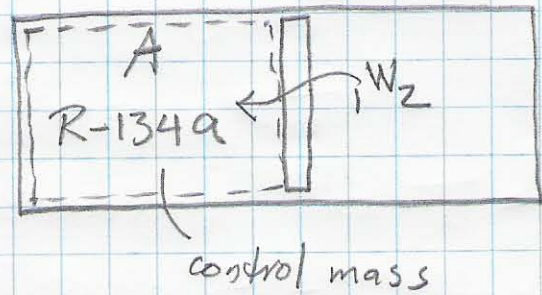 A
R-134a
₁W₂
control mass